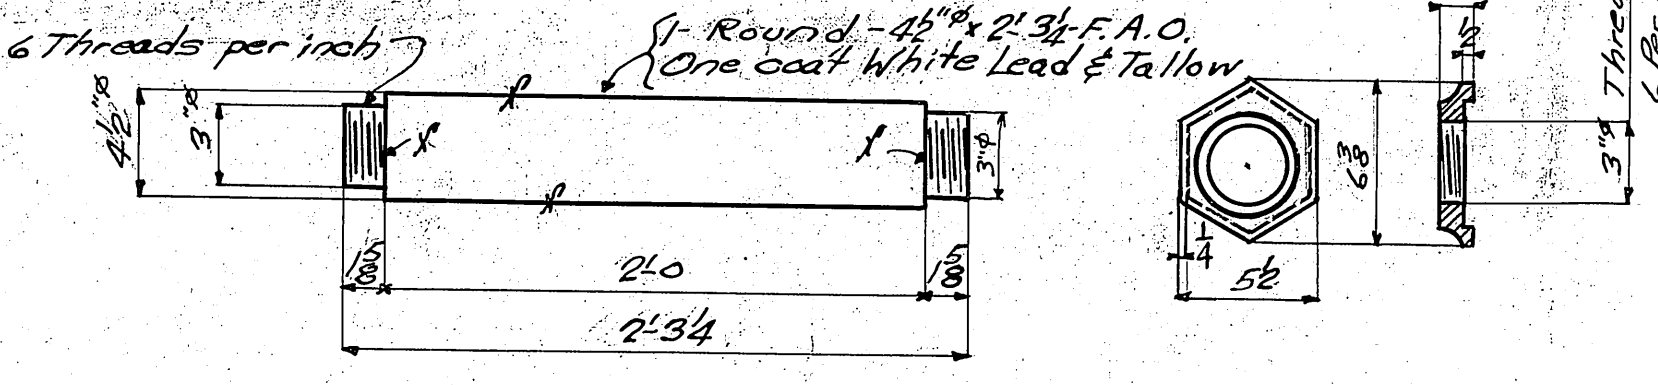 6 Threads per inch
1- Round - 4½"ø x 2'-3¼ - F.A.O.
One coat White Lead & Tallow
4½"ø
3"ø
f
f
f
f
3"ø
1⅝
2'-0
1⅝
2'-3¼
¼
5½
6⅜
½
3"ø